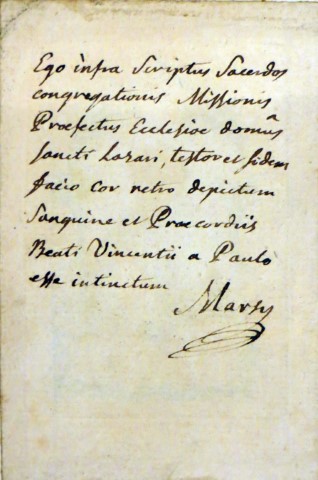 Ego infra Scriptus Sacerdos
congregationis Missionis
Praefectus Ecclesiae domûs
sancti Lazari, testor et fidem
facio cor retro depictum
Sanguine et Praecordiis
Beati Vincentii a Paulo
esse intinctum
Marsy